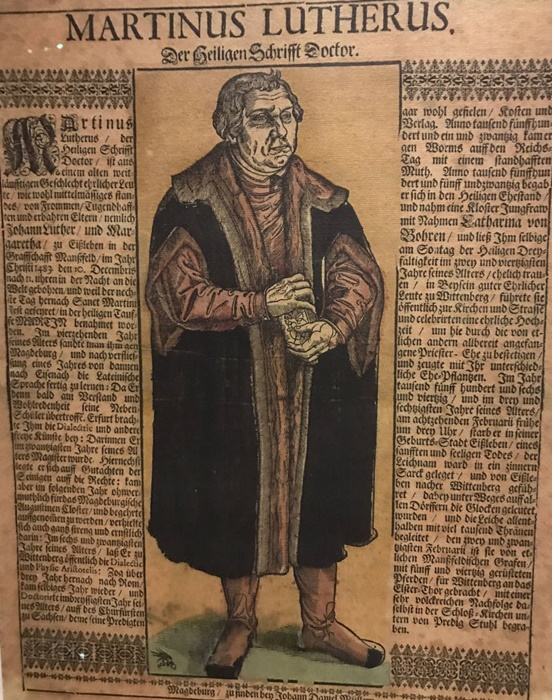 MARTINUS LUTHERUS.
Der Heiligen Schrifft Doctor.
MArtinus
Lutherus / der
Heiligen Schrifft
Doctor / ist aus
einem alten weit
läufftigen Geschlecht ehrlicher Leu
te / wie wohl mittelmässiges stan
des / von Frommen / Tugendhaff
ten und erbahren Eltern / nemlich
Johann Luther / und Mar-
garetha / zu Eißleben in der
Graffschafft Manßfeld / im Jahr
Christi 1483 den 10. Decembris
nach 11. uhren in der Nacht an die
Welt gebohren, und weil der nech-
ste Tag hernach Sanct Martini
Fest gefeyret / in der heiligen Tauf-
fe MARTIN benahmet wor-
den. Im vierzehenden Jahr
seines Alters sandte man ihn gen
Magdeburg / und nach verflies-
sung eines Jahres von dannen
nach Eisenach die Lateinische
Sprache fertig zu lernen: Da Er
denn bald am Verstand und
Wohlredenheit seine Neben-
Schüler übertroffen. Erfurt brach-
te Ihm die Dialectic und andere
freye Künste bey: Darinnen Er
im zwantzigsten Jahre seines Al
ters Magister wurde. Hiernechst
legte er sich auff Gutachten der
Seinigen auff die Rechte: kam
aber im folgenden Jahr
Augustinen Closter / und begehrte
auffgenommen zu werden / verhielte
sich auch gantz streng und ernstlich
darin: Im sechs und zwantzigsten
Jahre seines Alters / laß Er zu
Wittenberg öffentlich die Dialectic
und Physic Aristotelis: Zog über
drey Jahr hernach nach Rom /
kam selbiges Jahr wieder / und
Doctorirt im dreyssigsten Jahr sei-
nes Alters / auff des Churfürsten
zu Sachsen / deme seine Predigten
gar wohl gefielen / Kosten und
Verlag. Anno tausend fünffhun-
dert und ein und zwantzig kam er
gen Worms auff den Reichs-
Tag mit einem standhafften
Muth. Anno tausend fünffhun
dert und fünff und zwantzig begab
er sich in den Heiligen Ehestand /
und nahm eine Kloster Jungfraw
mit Nahmen Catharina von
Bohren / und ließ Ihm selbige
am Sontag der Heiligen Drey-
faltigkeit im zwey und vierzigsten
Jahre seines Alters / ehelich trau-
en / in Beysein guter Ehrlicher
Leute zu Wittenberg / führete sie
öffentlich zur Kirchen und Strasse
und celebrirten eine ehrliche Hoch-
zeit / um hie durch die von et-
lichen andern allbereit angefan-
gene Priester-Ehe zu bestetigen
und zeugte mit Ihr unterschied-
liche Ehe-Pflantzen. Im Jahr
tausend fünff hundert und sechs
und viertzig / und im drey und
sechtzigsten Jahre seines Alters /
am achtzehenden Februarii frühe
um drey Uhr / starb er in seiner
Geburts-Stadt Eißleben / eines
sanfften und seeligen Todes / der
Leichnam ward in ein zinnern
Sarck geleget / und von Eißle-
ben nacher Wittenberg gefüh-
ret / dabey unter Weges auff al-
len Dörffern die Glocken geleutet
wurden / und die Leiche allent-
halben mit viel tausend Thränen
begleitet / den zwey und zwan-
tzigsten Februarii ist sie von et-
lichen Manßfeldischen Grafen /
mit fünff und viertzig gerüsteten
Pferden / für Wittenberg an das
Elster-Thor gebracht / mit einer
sehr volckreichen Nachfolge da-
selbst in der Schloß-Kirchen un-
tern von Predig Stuhl begra-
ben.
Magdeburg / zu finden bey Johann Daniel